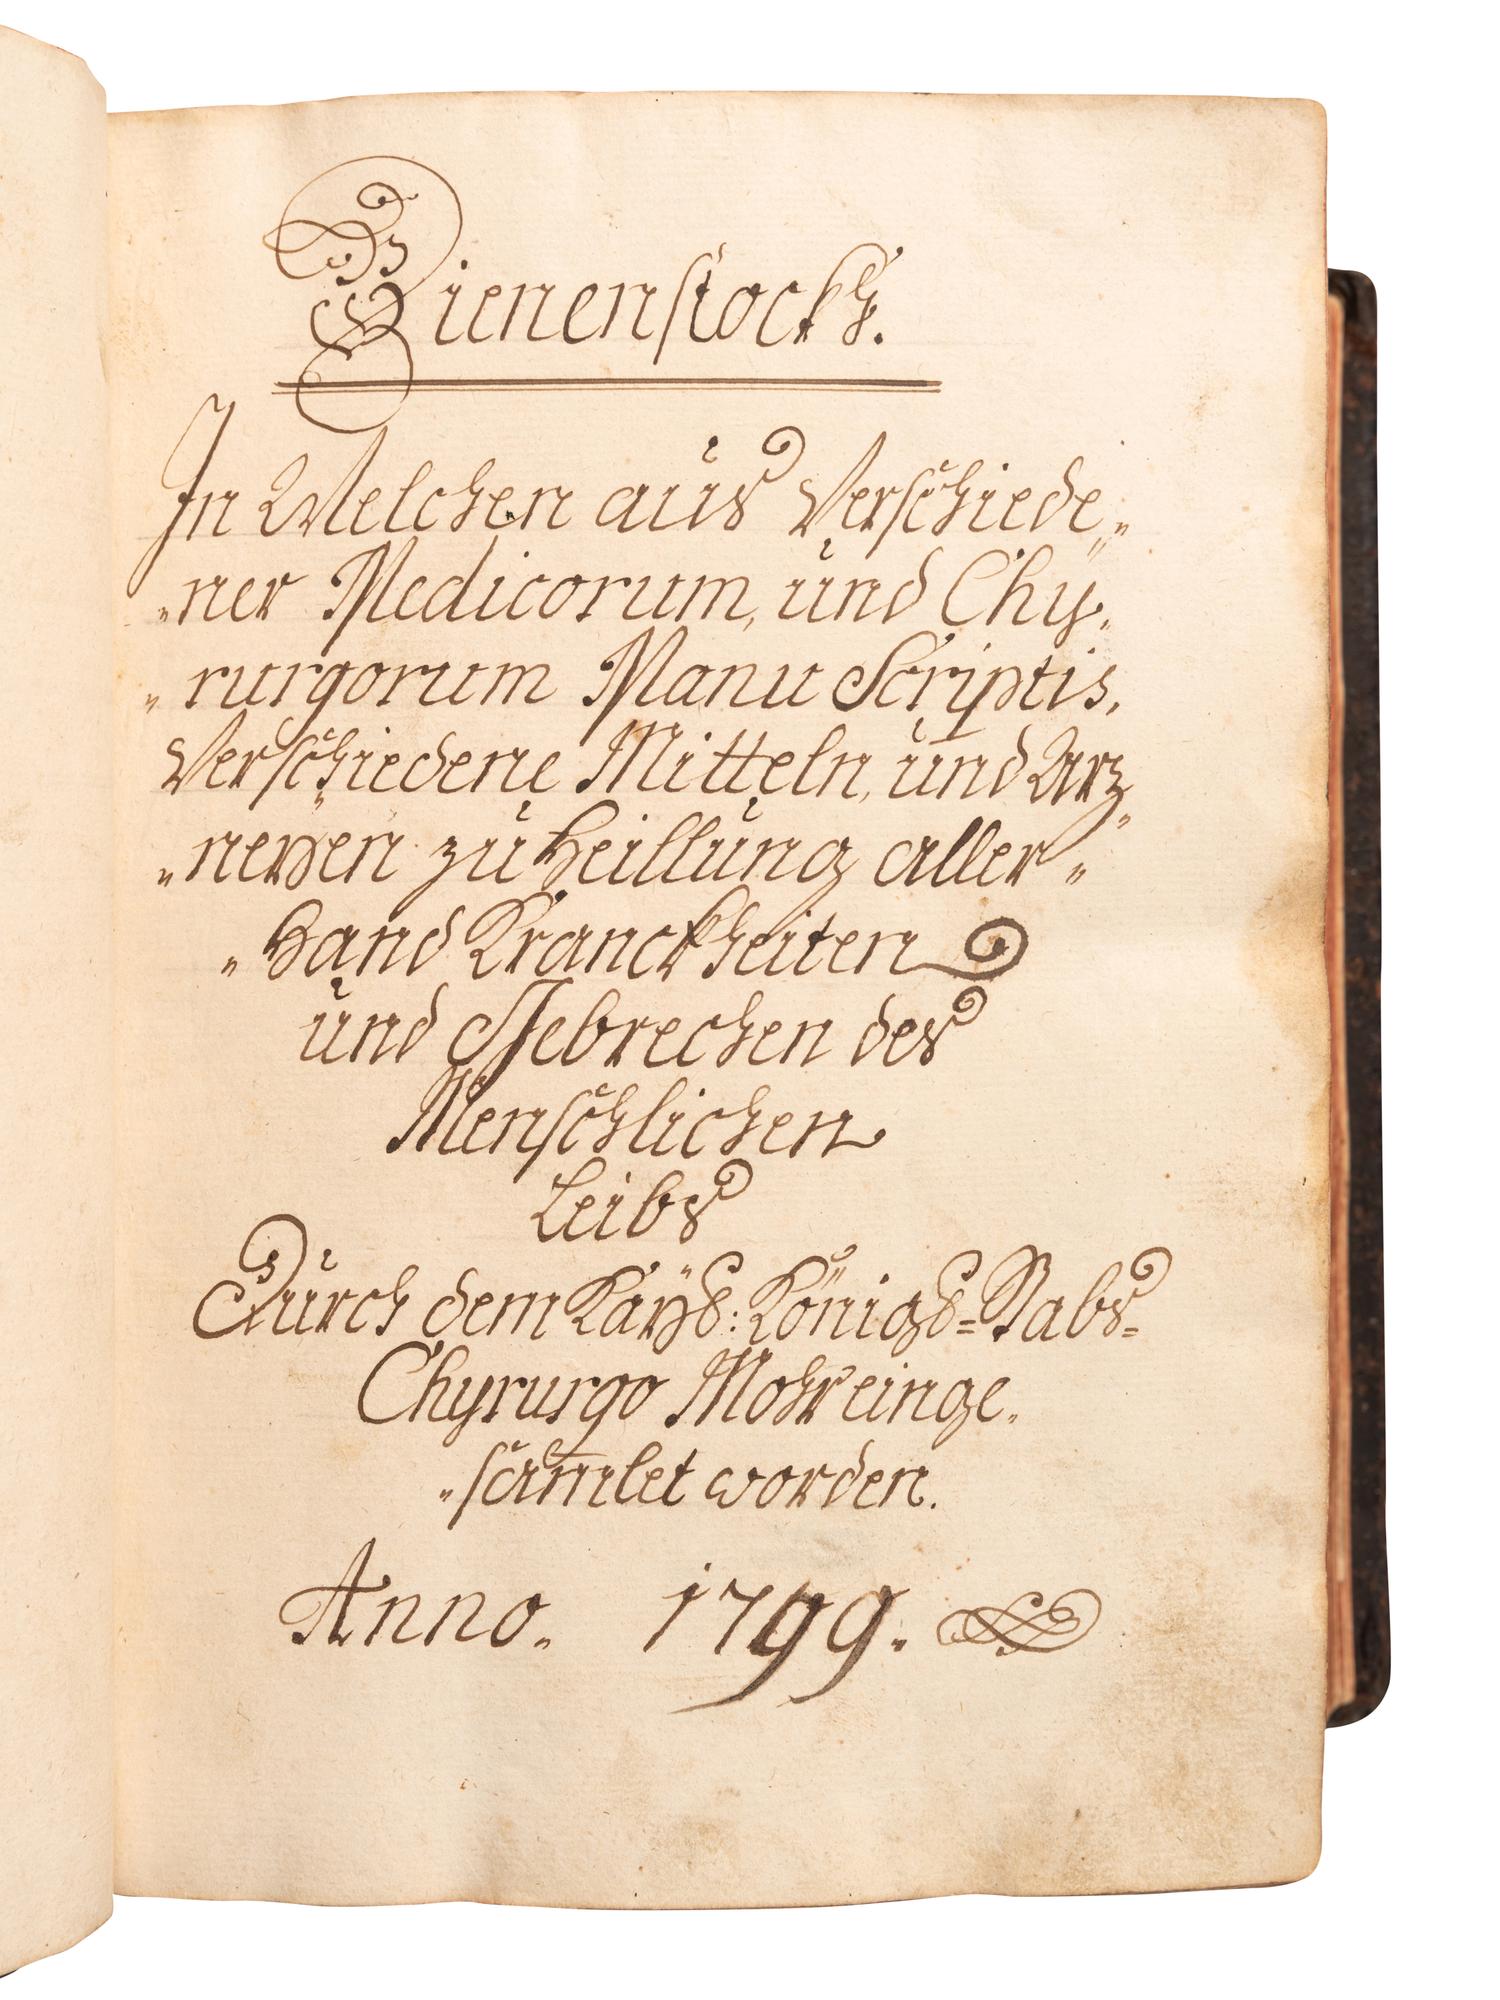 Bienenstock.
In Welchen aus Verschiede„
„ner Medicorum, und Chy„
„rurgorum Manu Scriptis,
Verschiedene Mitteln, und Arz„
„neyen zu heillung aller„
„hand Kranckheiten
und Gebrechen des
Menschlichen
Leibs
Durch dem Kaÿs: Königs= Stabs=
Chyrurgo Mohr einge„
„samlet worden.
Anno. 1799.